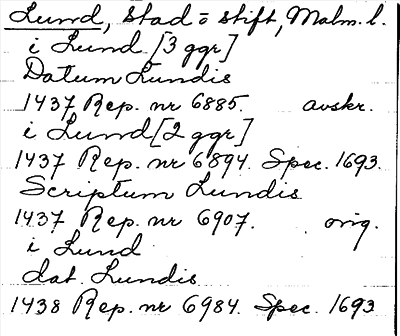 Lund, stad o stift, Malm. l.
i Lund [3 ggr]
Datum Lundis
1437 Rep. nr 6885. avskr.
i Lund [2 ggr]
1437 Rep. nr 6894. Spec. 1693.
Scriptum Lundis
1437 Rep. nr 6907. orig.
i Lund
dat. Lundis
1438 Rep. nr 6984. Spec. 1693